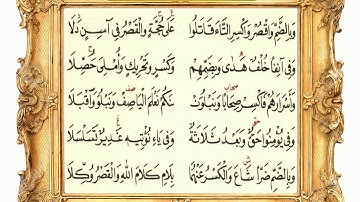 وَبِالضَّمِّ وَاقْصُرْ وَاكْسِرِ التَّاءَ قَاتَلُوا عَلَى حُجَّةٍ وَالْقَصْرُ فِي آسِنٍ دَلَا
وَفِي آنِفًا خُلْفٌ هَدَى وَبِضَمِّهِمْ وَكَسْرٍ وَتَحْرِيكٍ وَأُمْلِيَ حُصِّلَا
وَأَسْرَارَهُمْ فَاكْسِرْ صِحَابًا وَنَبْلُوَنْ نَكُمْ نَعْلَمَ الْيَا صِفْ وَنَبْلُوَ وَاقْبَلَا
وَفِي يُؤْمِنُوا حَقٌّ وَبَعْدُ ثَلَاثَةٌ وَفِي يَاءِ يُؤْتِيهِ غَدِيرٌ تَسَلْسَلَا
وَبِالضَّمِّ ضُرًّا شَاعَ وَالْكَسْرُ عَنْهُمَا بِلَامِ كَلَامَ اللهِ وَالْقَصْرُ وُكِّلَا